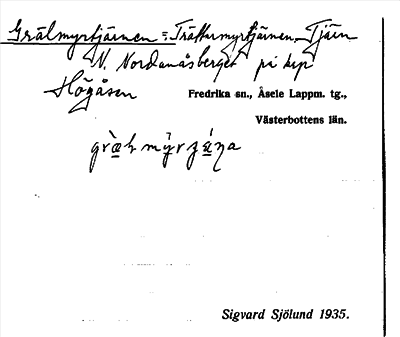 Grälmyrtjärnen = Trättmyrtjärnen. Tjärn
N. Nordanåsberget på kep
Högåsen
Fredrika sn., Åsele Lappm. tg.,
Västerbottens län.
Sigvard Sjölund 1935.